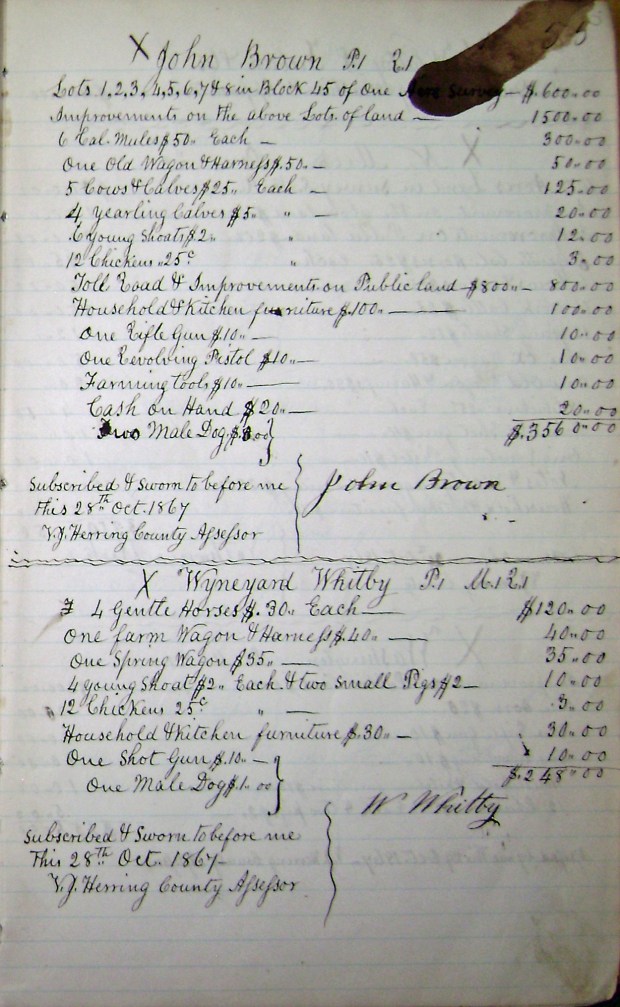 X John Brown P1 R1
Lots 1,2,3,4,5,6,7 & 8 in Block 45 of One Acre Survey — $.600.00
Improvements on the above Lots of land — 1500.00
6 Cal. Mules $50,, Each — 300.00
One Old Wagon & Harness $.50.— 50.00
5 Cows & Calves $25,, Each — 125.00
4 Yearling Calves $5,, „ — 20.00
6 young Shoats $2,, „ 12.00
12 Chickens 25c „ 3.00
Toll Road & Improvements on Public land — $800,,— 800.00
Household & Kitchen furniture $.100,, — 100.00
One Rifle Gun $.10,,— 10.00
One Revolving Pistol $10,,— 10.00
Farming tools $10,,— 10.00
Cash on Hand $20,,— 20.00
Two Male Dog $ 00 $.3560.00
Subscribed & Sworn to before me
this 28th Oct. 1867
V.J. Herring County Assessor
John Brown
X Wyneyard Whitby P1 M1 R1
4 Gentle Horses $.30,, Each — $120.00
One farm Wagon & Harness $.40,, — 40.00
One Spring Wagon $35,, — 35.00
4 Young Shoat $2,, Each. & two Small Pigs $2— 10.00
12 Chickens 25c „ — 3.00
Household & Kitchen furniture $.30,,— 30.00
One Shot Gun $.10,,— 10.00
One Male Dog $1.00 $.248.00
W. Whitby
Subscribed & Sworn to before me
This 28th Oct. 1867—
V.J. Herring County Assessor